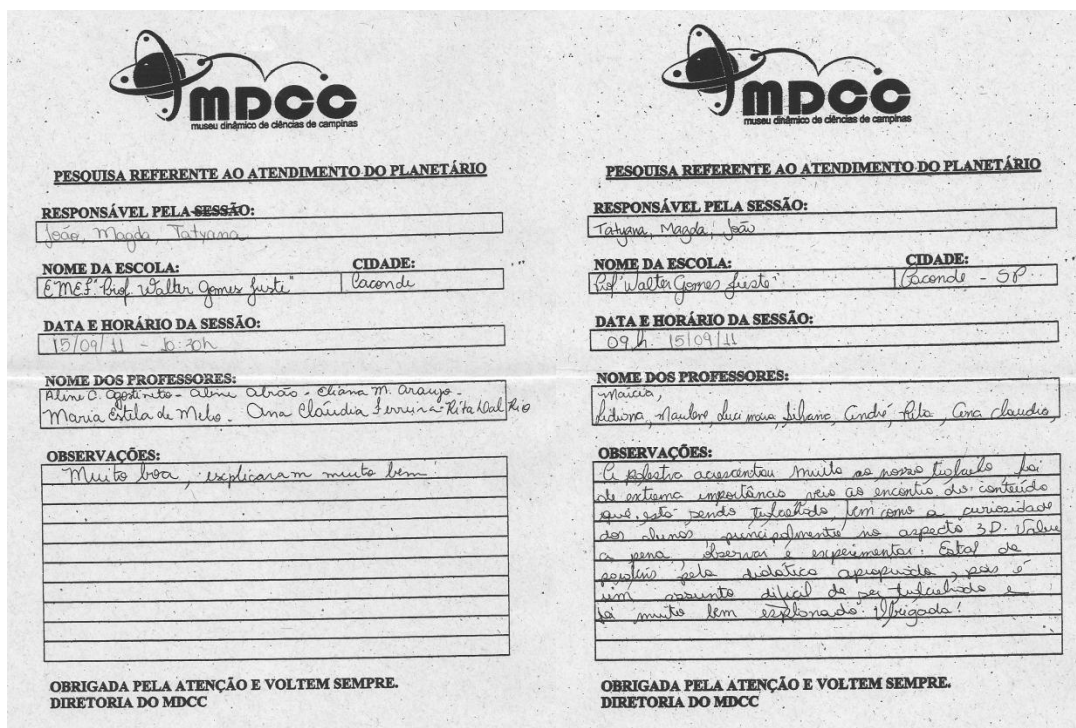 MDCC
museu dinâmico de ciências de campinas
PESQUISA REFERENTE AO ATENDIMENTO DO PLANETÁRIO
RESPONSÁVEL PELA SESSÃO:
João, Magda, Tatyana
NOME DA ESCOLA: CIDADE:
EMEF "Prof. Walter Gomes Juste" Caconde
DATA E HORÁRIO DA SESSÃO:
15/09/11 - 10:30h
NOME DOS PROFESSORES:
Aline C. Agostineto - Aline Abrão - Eliana M. Araujo -
Maria Estela de Melo - Ana Cláudia Ferreira - Rita Dal Rio
OBSERVAÇÕES:
Muito boa, explicaram muito bem
OBRIGADA PELA ATENÇÃO E VOLTEM SEMPRE.
DIRETORIA DO MDCC
MDCC
museu dinâmico de ciências de campinas
PESQUISA REFERENTE AO ATENDIMENTO DO PLANETÁRIO
RESPONSÁVEL PELA SESSÃO:
Tatyana, Magda, João
NOME DA ESCOLA: CIDADE:
Prof. "Walter Gomes Juste" Caconde - SP
DATA E HORÁRIO DA SESSÃO:
09 h 15/09/11
NOME DOS PROFESSORES:
Maicia,
Marlene, Silvana, André, Rita, Ana Claudia,
OBSERVAÇÕES:
A palestra acrescentou muito ao nosso trabalho foi
de extrema importância veio ao encontro do conteúdo
que está sendo trabalhado bem como a curiosidade
dos alunos principalmente no aspecto 3D. Valeu
a pena observar e experimentar. Estal de
parabéns pela didática apropriada, pois é
um assunto difícil de ser trabalhado e
foi muito bem explanado. Obrigada!
OBRIGADA PELA ATENÇÃO E VOLTEM SEMPRE.
DIRETORIA DO MDCC